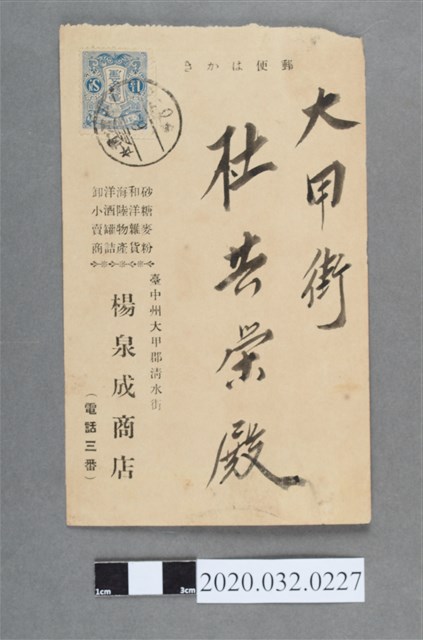 郵便はかき
大甲街
杜共榮殿
砂糖麥粉
和洋雜貨
海陸物產
洋酒罐詰
卸小賣商
臺中州大甲郡清水街
楊泉成商店
（電話三番）
1cm 3cm
2020.032.0227